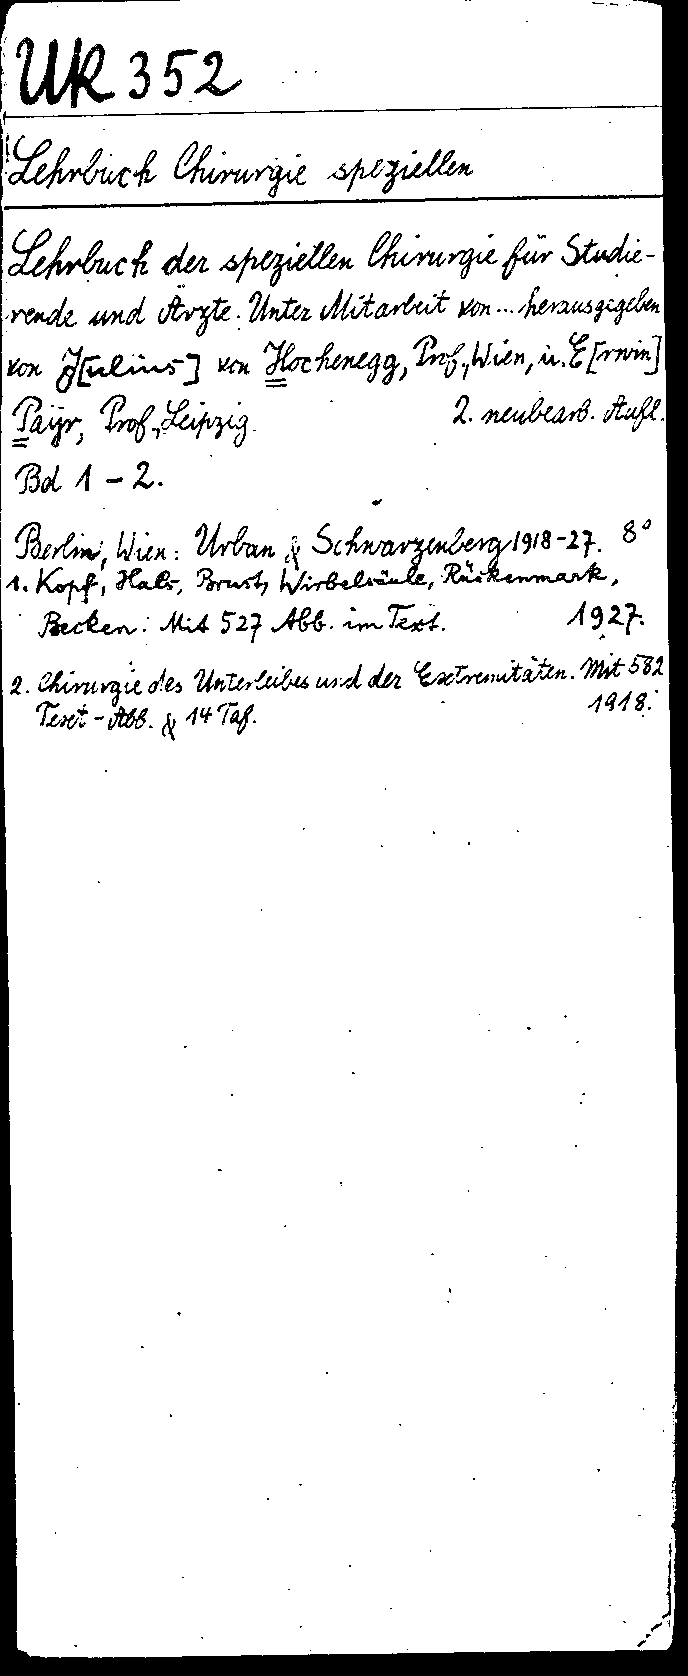 UR 352
Lehrbuch Chirurgie speziellen
Lehrbuch der speziellen Chirurgie für Studie-
rende und Ärzte. Unter Mitarbeit von... herausgegeben
von J[ulius] von Hochenegg, Prof., Wien, u. E[rwin]
Payr, Prof., Leipzig. 2. neubearb. Aufl.
Bd 1 - 2.
Berlin, Wien: Urban & Schwarzenberg 1918-27. 8°
1. Kopf, Hals, Brust, Wirbelsäule, Rückenmark,
Becken. Mit 527 Abb. im Text. 1927.
2. Chirurgie des Unterleibes und der Extremitäten. Mit 582
Text-Abb. & 14 Taf. 1918.